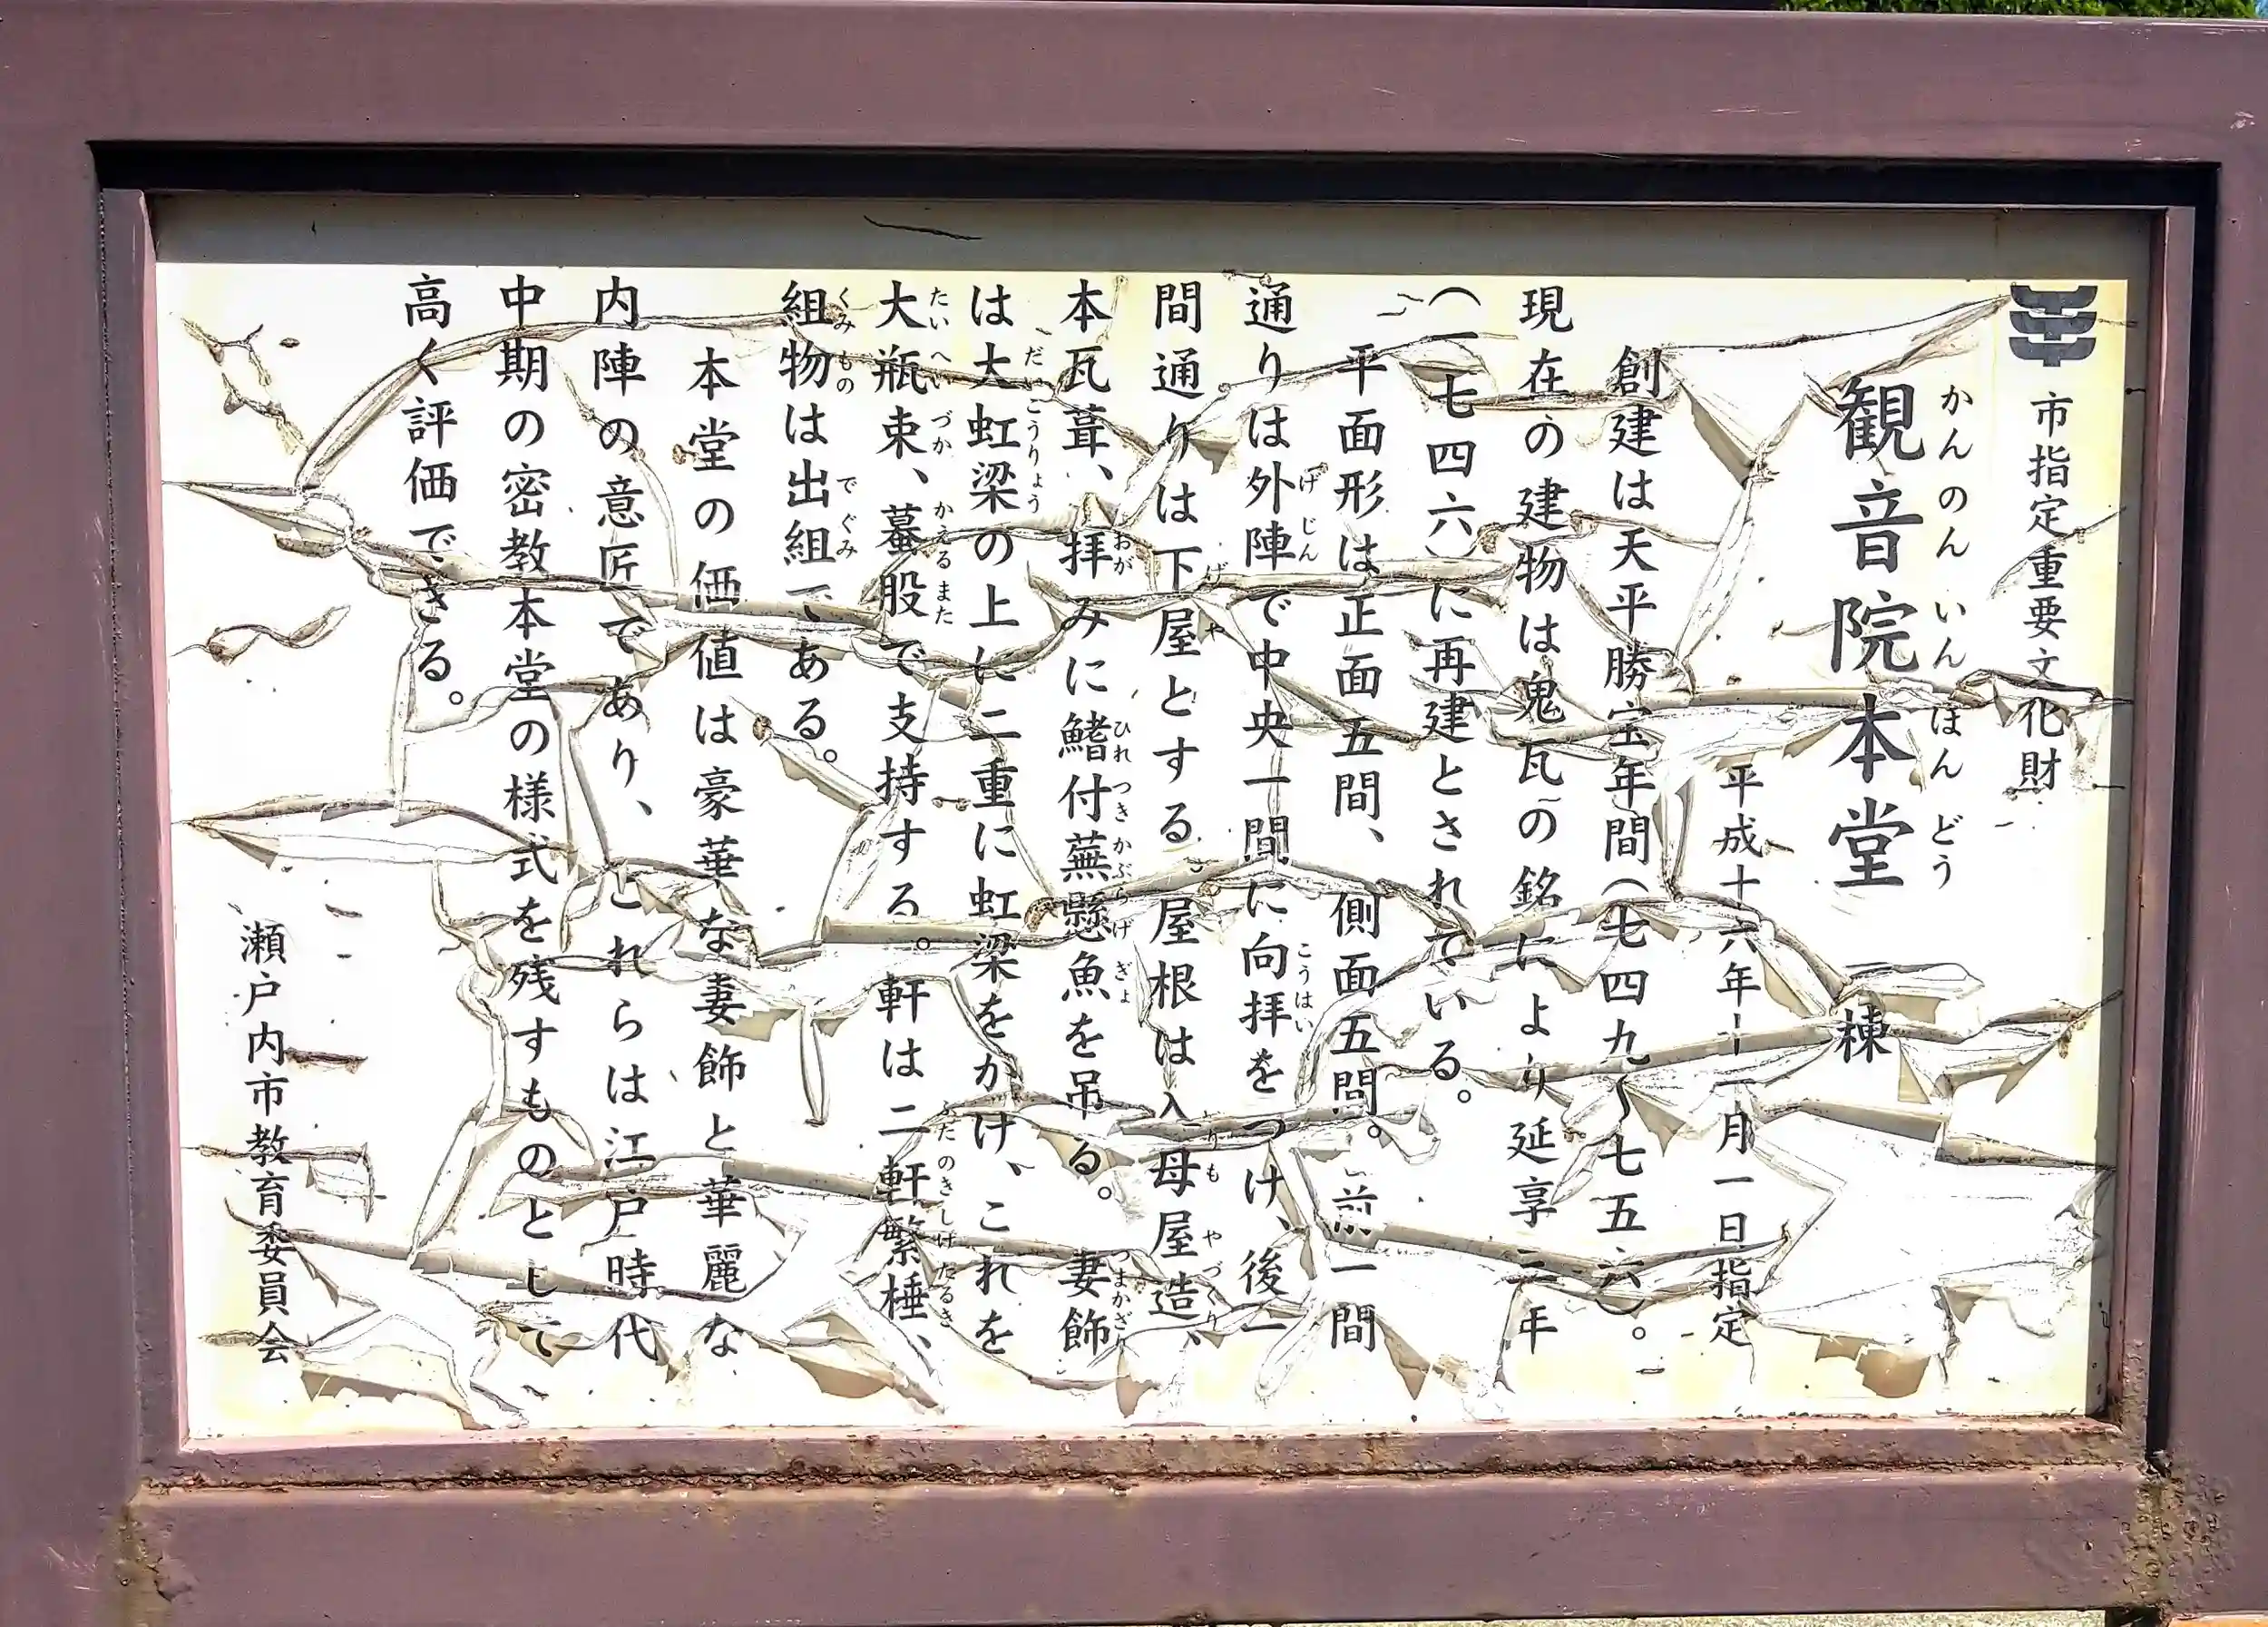 市指定重要文化財
観音院本堂 一棟
かんのんいんほんどう
平成十六年十一月一日指定
創建は天平勝宝年間(七四九〜七五六)。
現在の建物は鬼瓦の銘により延享三年
(一七四六)に再建とされている。
平面形は正面五間、側面五間。前一間
通りは外陣で中央一間に向拝をつけ、後一
げじん こうはい
間通りは下屋とする。屋根は入母屋造、
げや いりもやづくり
本瓦葺、拝みに鰭付蕪懸魚を吊る。妻飾
おが ひれつきかぶらげぎょ つまかざり
は大虹梁の上に二重に虹梁をかけ、これを
だいこうりょう
大瓶束、蟇股で支持する。軒は二軒繁棰、
たいへいづか かえるまた ふたのきしげたるき
組物は出組である。
くみもの でぐみ
本堂の価値は豪華な妻飾と華麗な
内陣の意匠であり、これらは江戸時代
中期の密教本堂の様式を残すものとして
高く評価できる。
瀬戸内市教育委員会